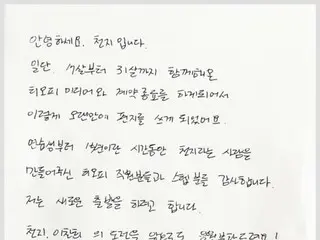 안녕하세요. 천지 입니다.
일단. 17살부터 31살까지 함께해온
티오피 미디어와 계약종료를 하게되어서
이렇게 오랜만에 편지를 쓰게 되었어요.
연습생부터 14년이란 시간동안 천지라는 사람을
만들어주신 티오피 직원분들과 스텝분들 감사합니다.
저는 새로운 출발을 하려고 합니다.
천지. 이찬희 의 도전을